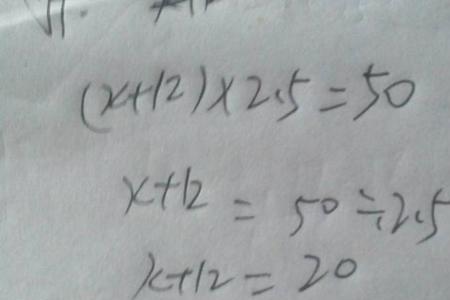 (x+12)×2.5=50
x+12=50÷2.5
x+12=20